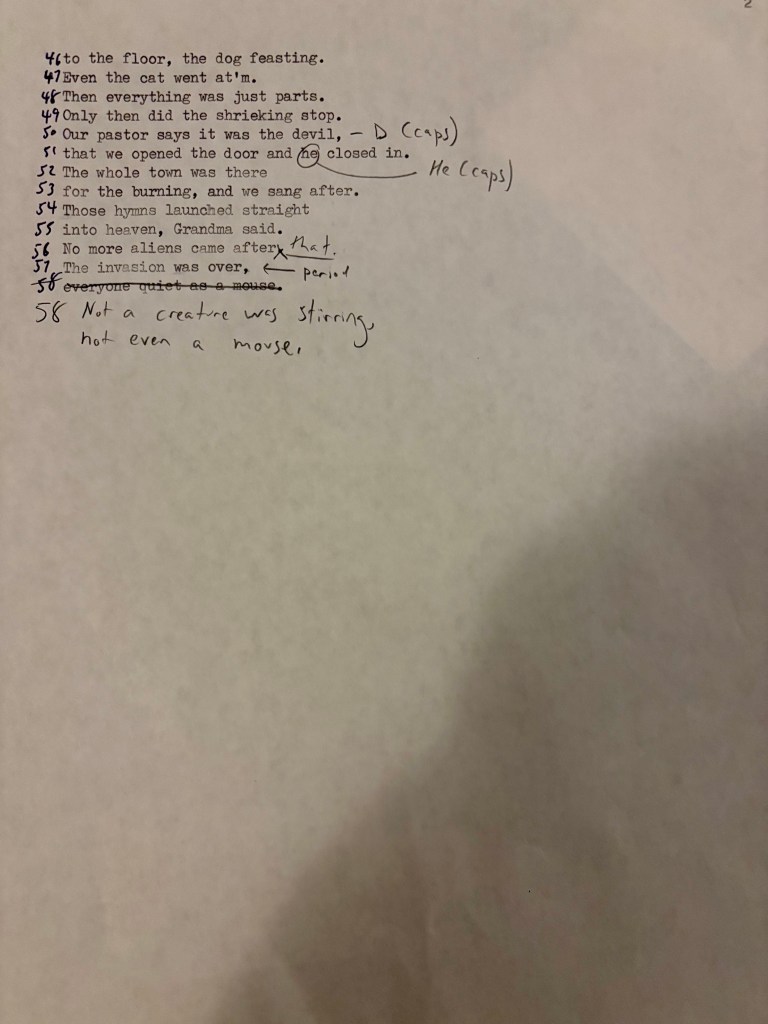 2
46 to the floor, the dog feasting.
47 Even the cat went at'm.
48 Then everything was just parts.
49 Only then did the shrieking stop.
50 Our pastor says it was the devil, — D (caps)
51 that we opened the door and he closed in.
He (caps)
52 The whole town was there
53 for the burning, and we sang after.
54 Those hymns launched straight
55 into heaven, Grandma said.
56 No more aliens came after, that.
57 The invasion was over, ← period
58 everyone quiet as a mouse.
58 Not a creature was stirring,
not even a mouse.